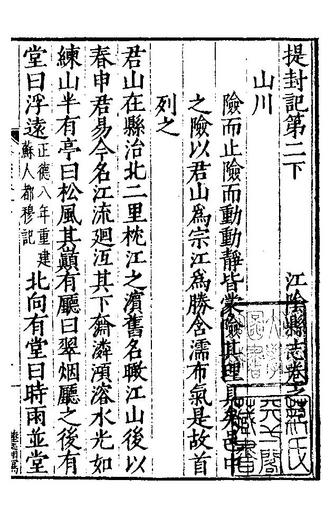 提封記第二下 江陰縣志卷之
山川
險而止險而動動靜皆蒙險其理具矣 中
之險以君山爲宗江爲勝含濡布氣是故首
列之
君山在縣治北二里枕江之濱舊名瞰江山後以
春申君易今名江流迴沍其下奫潾澒溶水光如
練山半有亭曰松風其巔有廳曰翠烟廳之後有
堂曰浮遠正德八年重建蘇人都穆記北向有堂曰時雨並堂